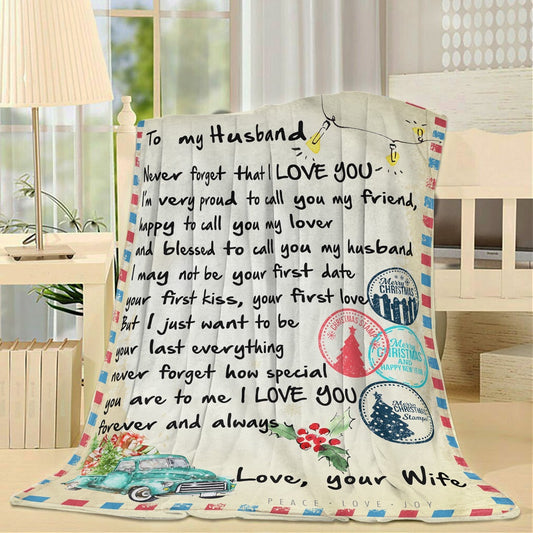 To my Husband
Never forget that I LOVE YOU
I'm very proud to call you my friend,
happy to call you my lover
and blessed to call you my husband
I may not be your first date
your first kiss, your first love
But I just want to be
your last everything
never forget how special
you are to me I LOVE YOU
forever and always
Love, your Wife
PEACE · LOVE · JOY
Merry
CHRISTMAS
CHRISTMAS
MERRY
CHRISTMAS
AND
HAPPY NEW YEAR
Merry
CHRISTMAS
Stamp